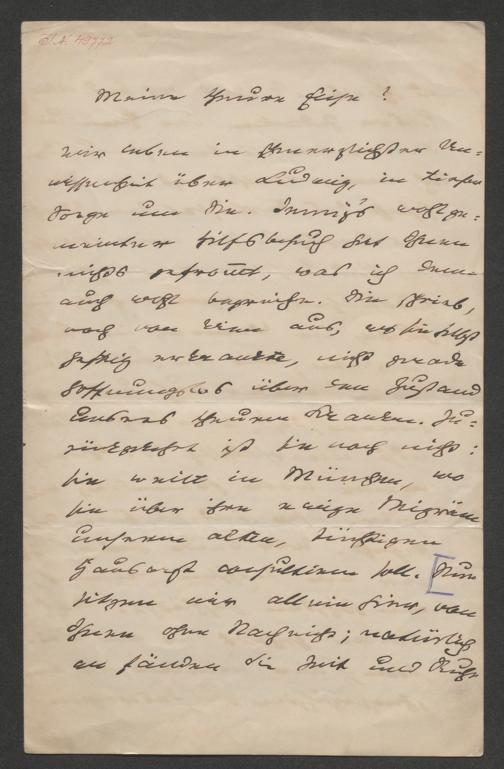 J.N. 49772
Meine theure Lise!
wir leben in schmerzlichster Un-
wissenheit über Ludwig, in tiefer
Sorge um Sie. Jennÿ's wohlge-
meinter Hilfsbesuch hat Ihnen
nichts gefrom̄t, was ich denn
auch wohl begreife. Sie schrieb,
noch von Wien aus, wo sie selbst
heftig erkrankte, nicht gerade
hoffnungslos über den Zustand
unsres theuren Kranken. Zu-
rückgekehrt ist sie noch nicht:
sie weilt in München, wo
sie über ihre ewige Migräne
unseren alten, tüchtigen
Hausarzt consultieren soll. Nun
sitzen wir allein hier, von
Ihnen ohne Nachricht; natürlich
en fänden Sie Zeit und Ruhe